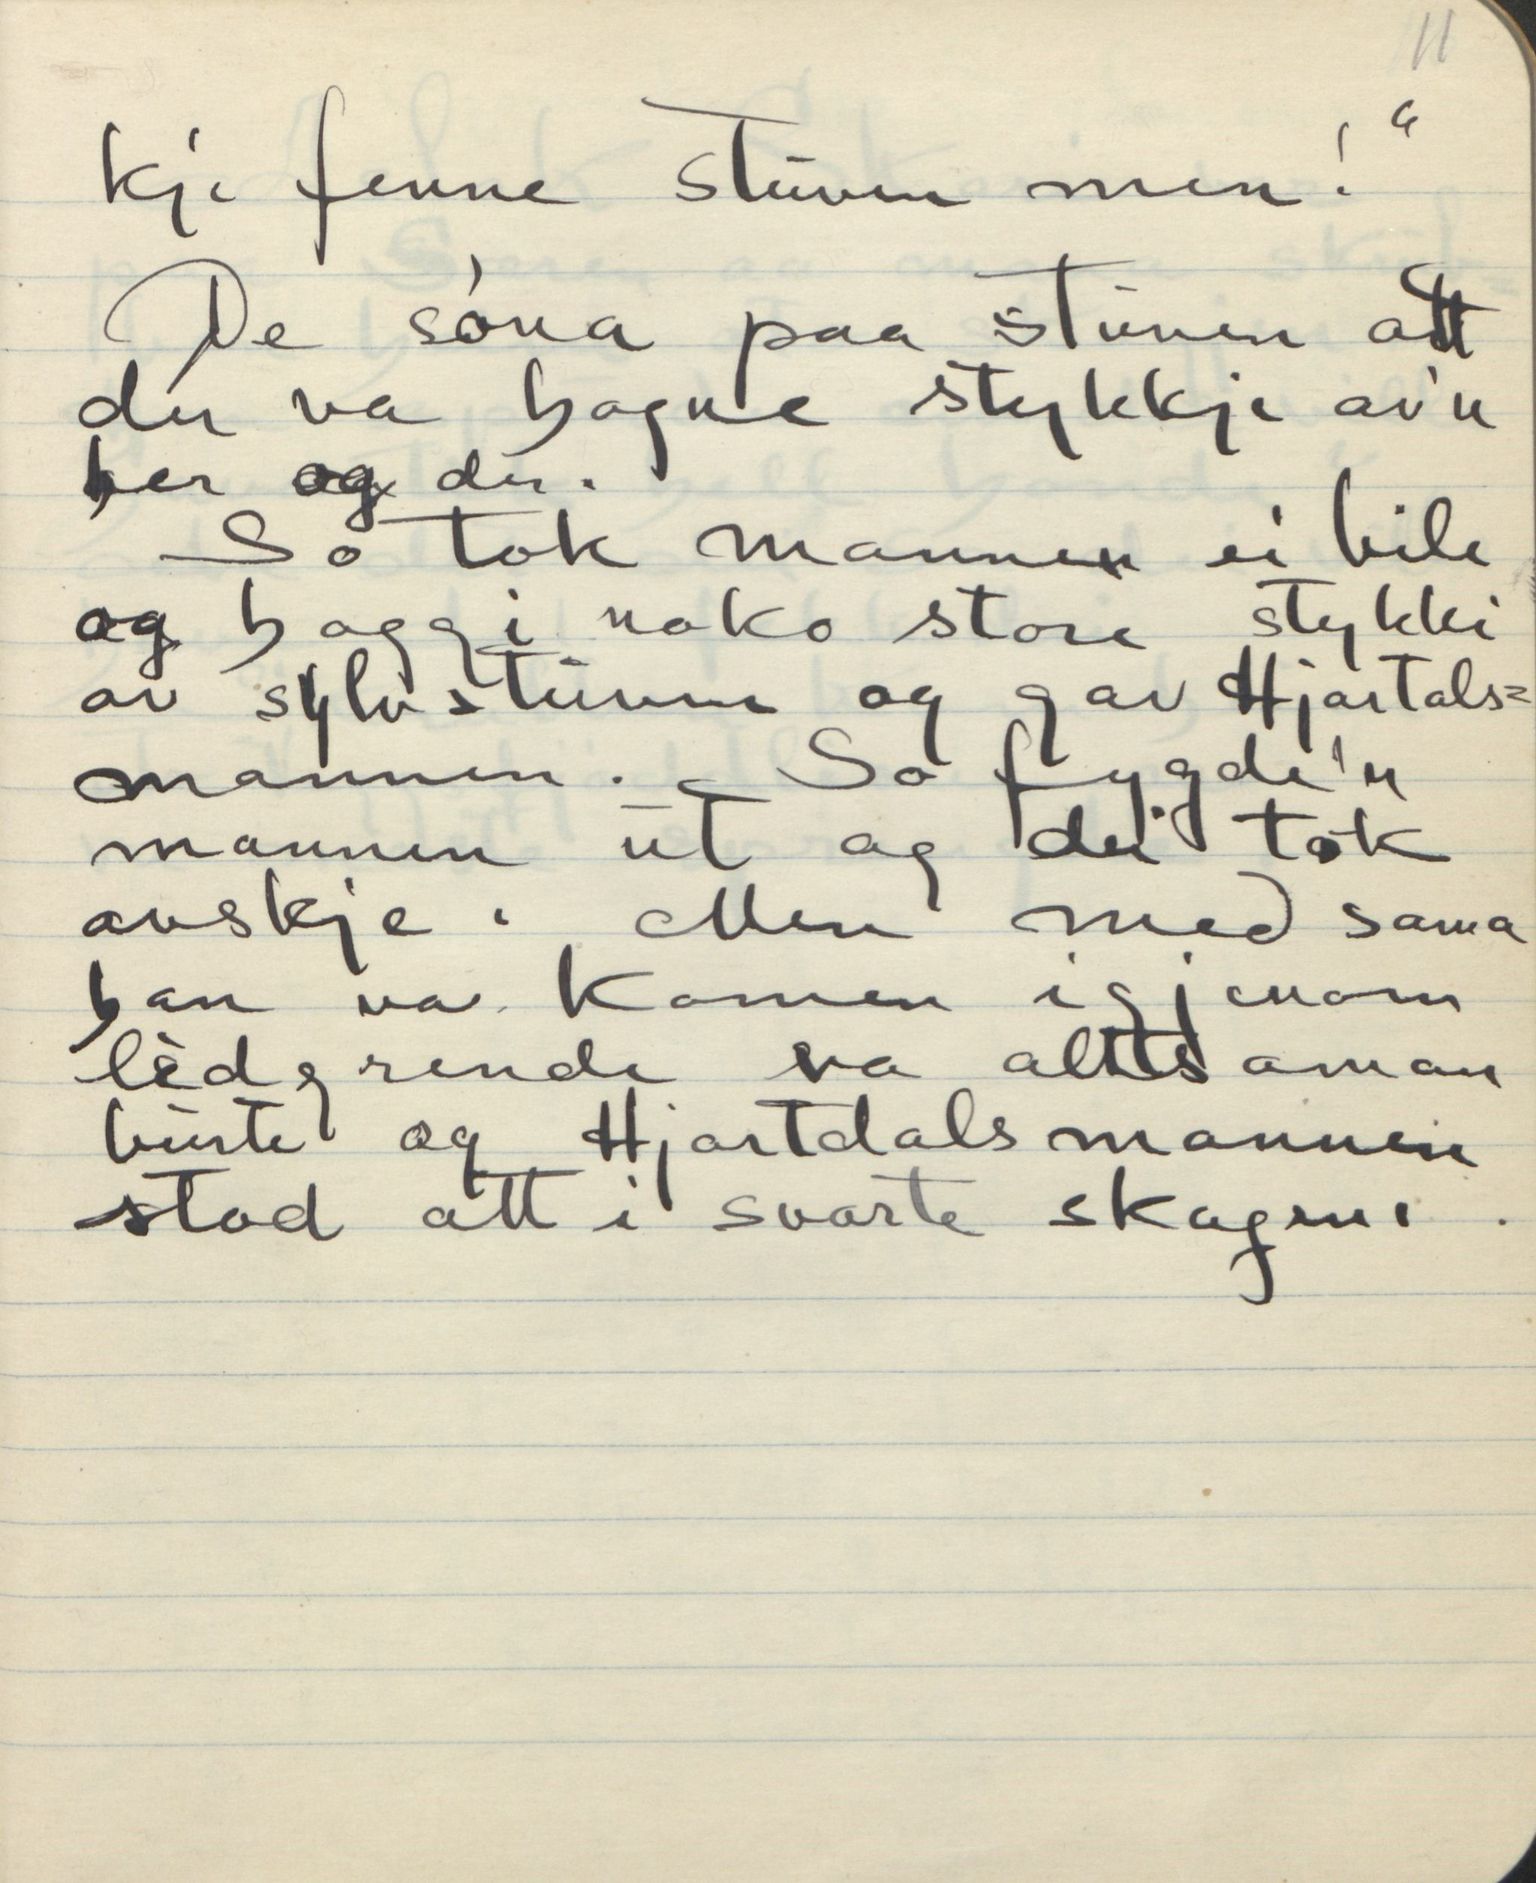 11
kje fenne stuven men!"
De sóna paa stuven att
der va hogne stykkje av'n
her og der.
So tok mannen ei bile
og hoggi noko store stykki
av sylvstuven og gav Hjartals=
mannen. – So fygde'n
mannen ut og dei tok
avskje. Men med sama
han va komen igjenom
lèdgrende va alltsaman
burte og Hjartdalsmannen
stod att i svarte skogene.